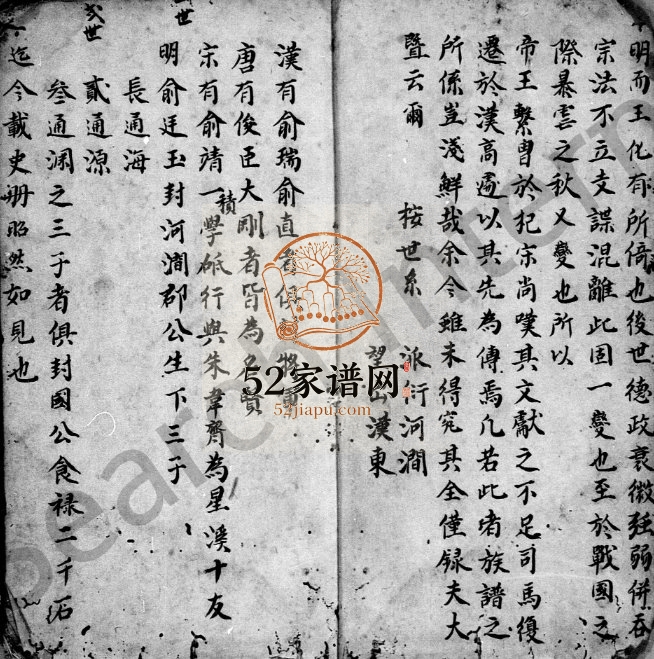 明而王化有所倚也後世德政衰微强弱併吞
宗法不立支諜混離此固一變也至於戰國之
際暴雲之秋又變也所以
帝王繫曹於犯宋尚嘆其文獻之不足司馬復
遷於漢高處以其先為傳焉凡若此者族譜之
所係豈淺鮮哉余今雖未得究其全僅録夫大
暨云爾
按世系
派衍河澗
望出漢東
漢有俞瑞俞直者俱將軍
唐有俊臣大剛者皆為名賢
宋有俞靖一積學砥行與朱韋齋為星溪十友
一世
明俞廷玉封河澗郡公生下三子
長通海
弍世
貳通源
叁通渊之三子者俱封國公食禄二千石
迄今載史册昭然如見也
52家谱网
52jiapu.com